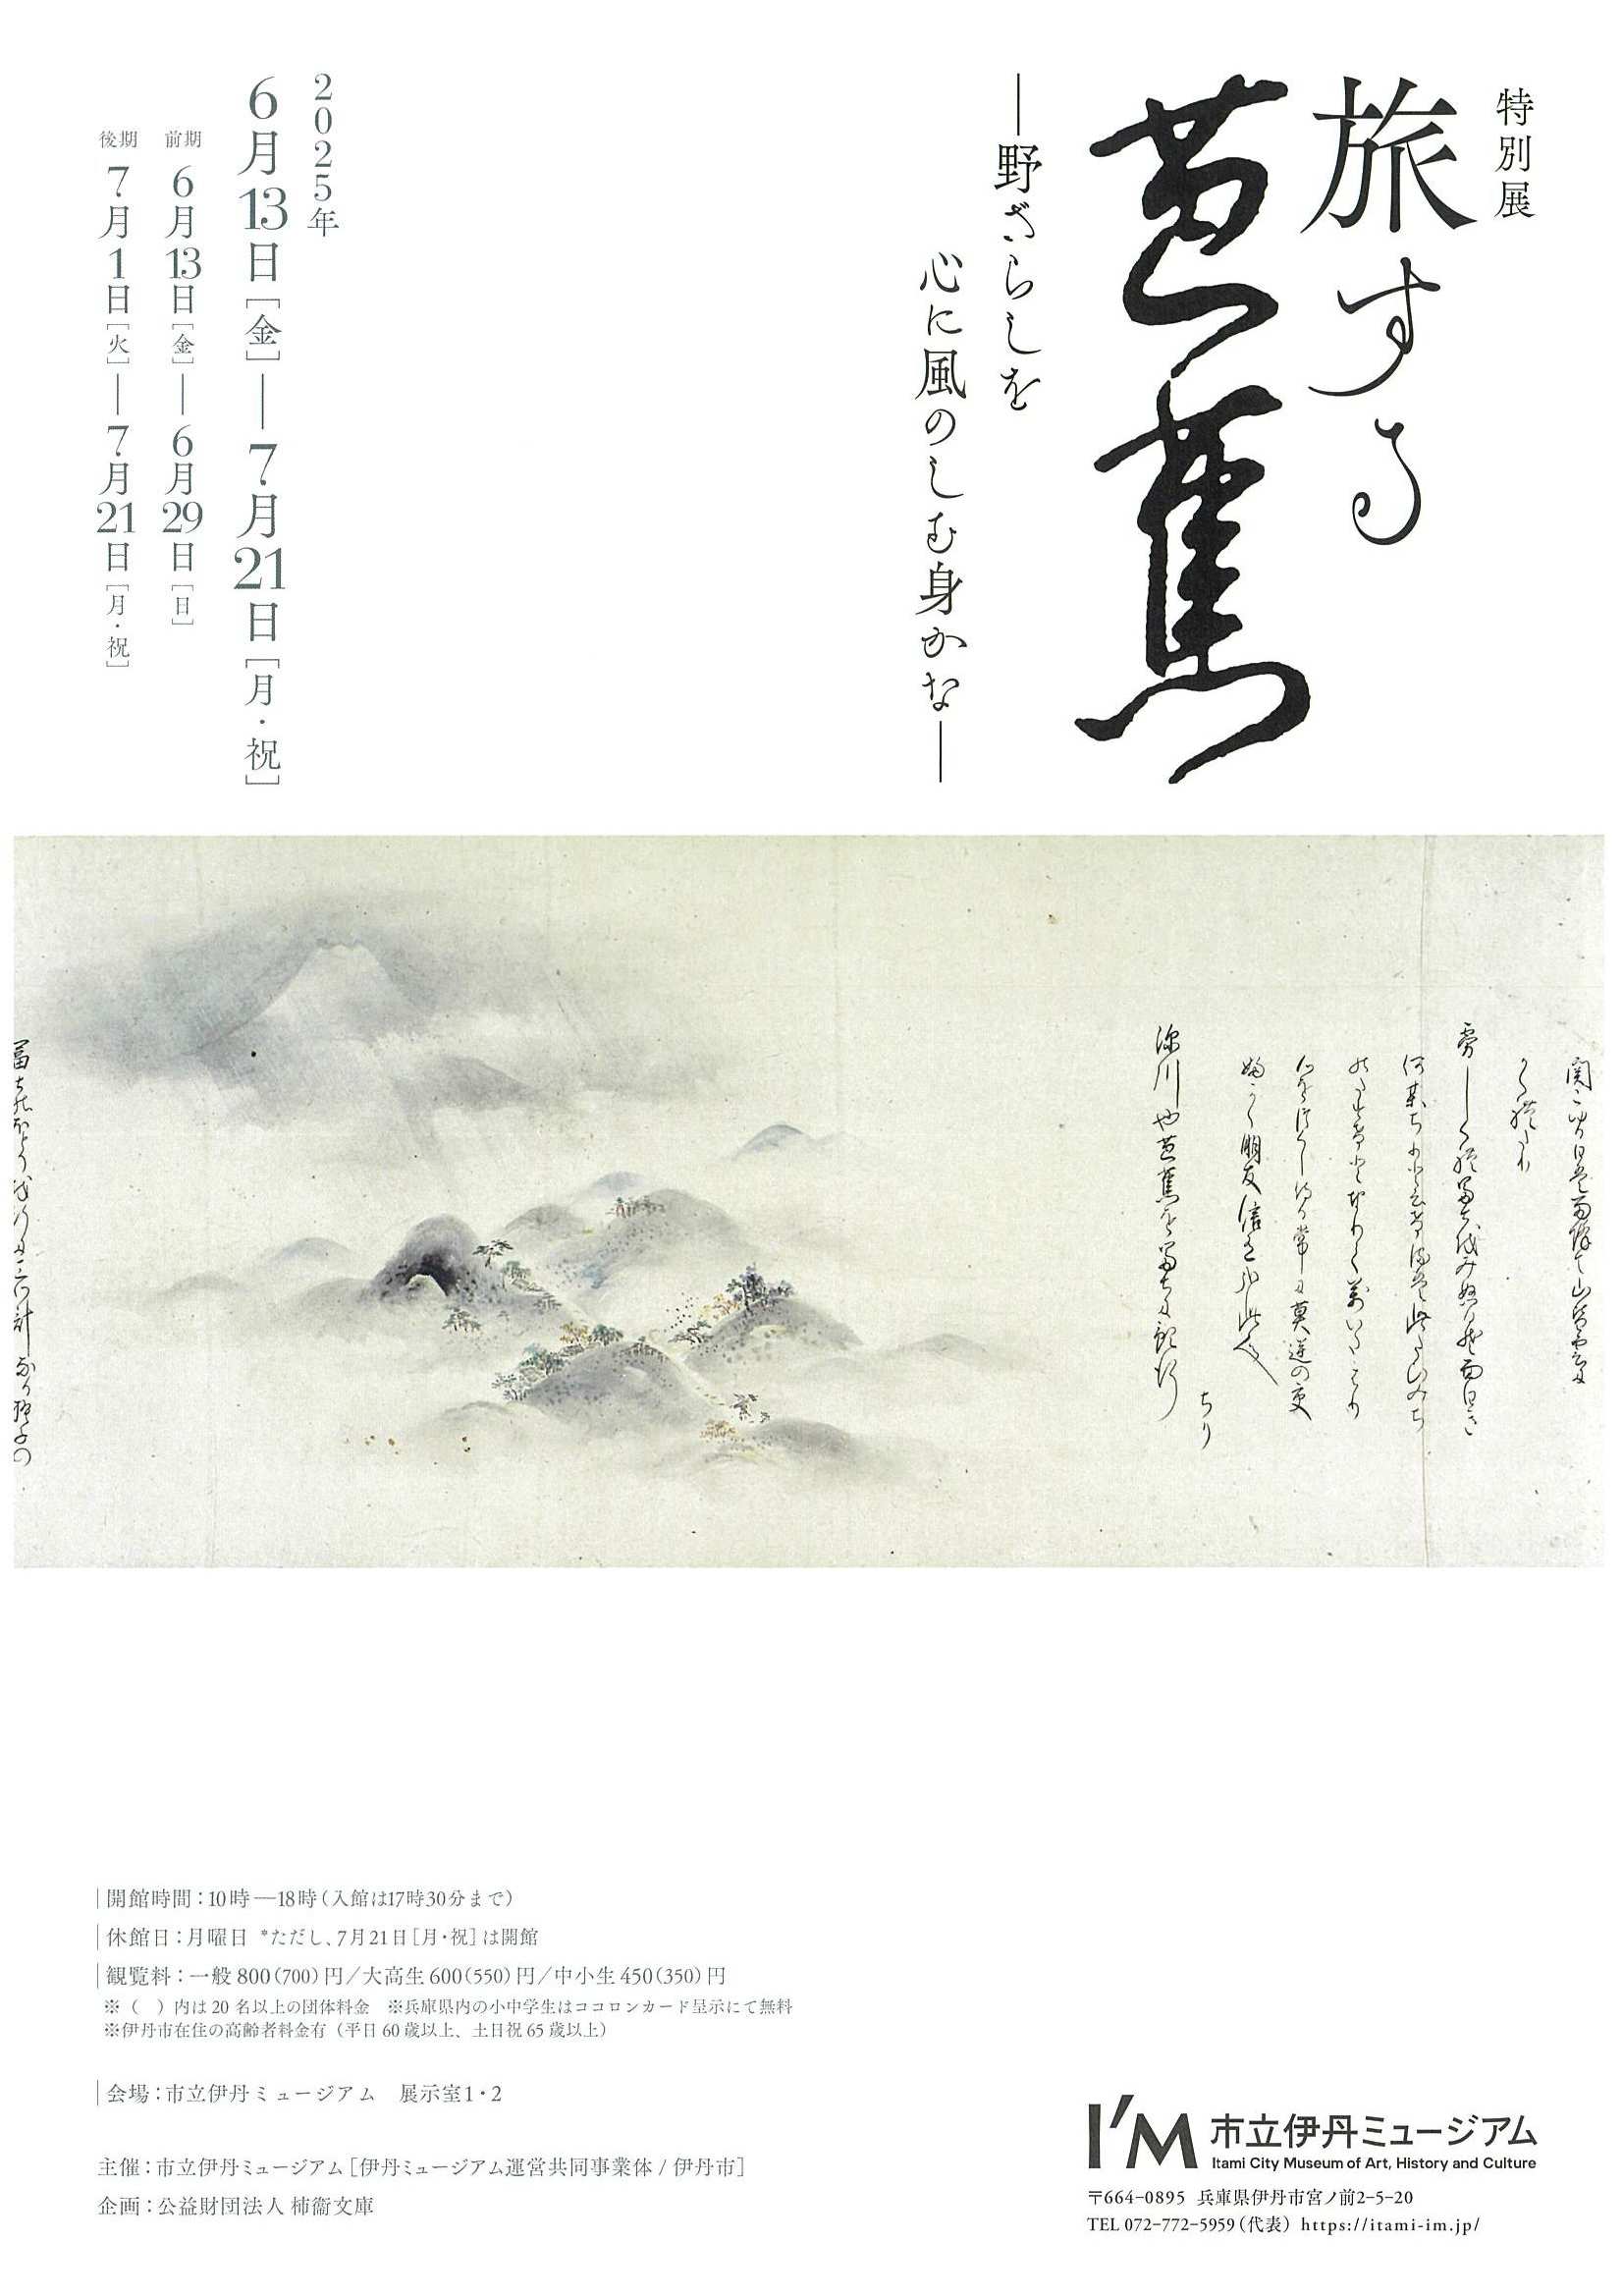 特別展
旅する
芭蕉
―野ざらしを
心に風のしむ身かな―
2025年
6月13日[金]―7月21日[月・祝]
前期 6月13日[金]―6月29日[日]
後期 7月1日[火]―7月21日[月・祝]
深川や芭蕉を富士に預行
ちり
開館時間：10時―18時（入館は17時30分まで）
休館日：月曜日 *ただし、7月21日[月・祝]は開館
観覧料：一般 800（700）円／大高生 600（550）円／中小生 450（350）円
※（　）内は 20 名以上の団体料金　※兵庫県内の小中学生はココロンカード呈示にて無料
※伊丹市在住の高齢者料金有（平日 60 歳以上、土日祝 65 歳以上）
会場：市立伊丹ミュージアム　展示室1・2
主催：市立伊丹ミュージアム［伊丹ミュージアム運営共同事業体 / 伊丹市］
企画：公益財団法人 柿衞文庫
I'M 市立伊丹ミュージアム
Itami City Museum of Art, History and Culture
〒664-0895 兵庫県伊丹市宮ノ前2-5-20
TEL 072-772-5959（代表） https://itami-im.jp/